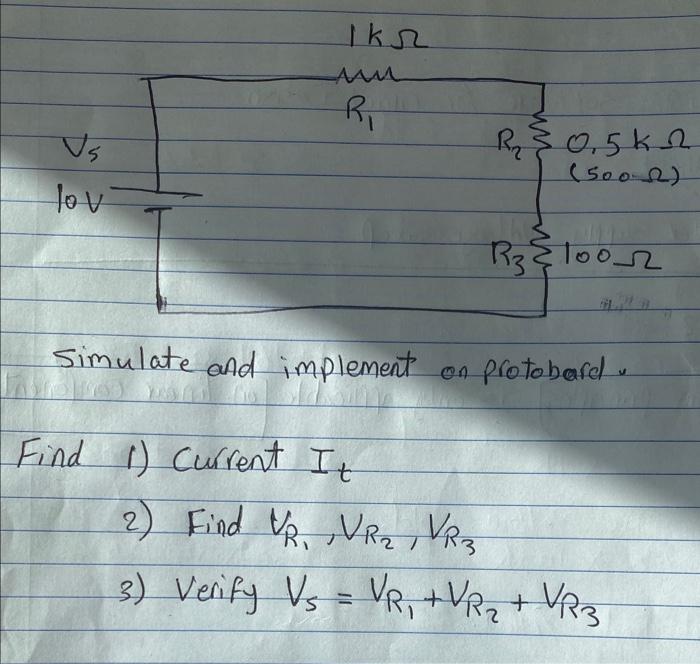 1kΩ
R₁
Vs
10V
R₂ 0.5kΩ
(500Ω)
R₃ 100Ω
Simulate and implement on protobard.
Find 1) Current It
2) Find VR₁, VR₂, VR₃
3) Verify Vs = VR₁ + VR₂ + VR₃